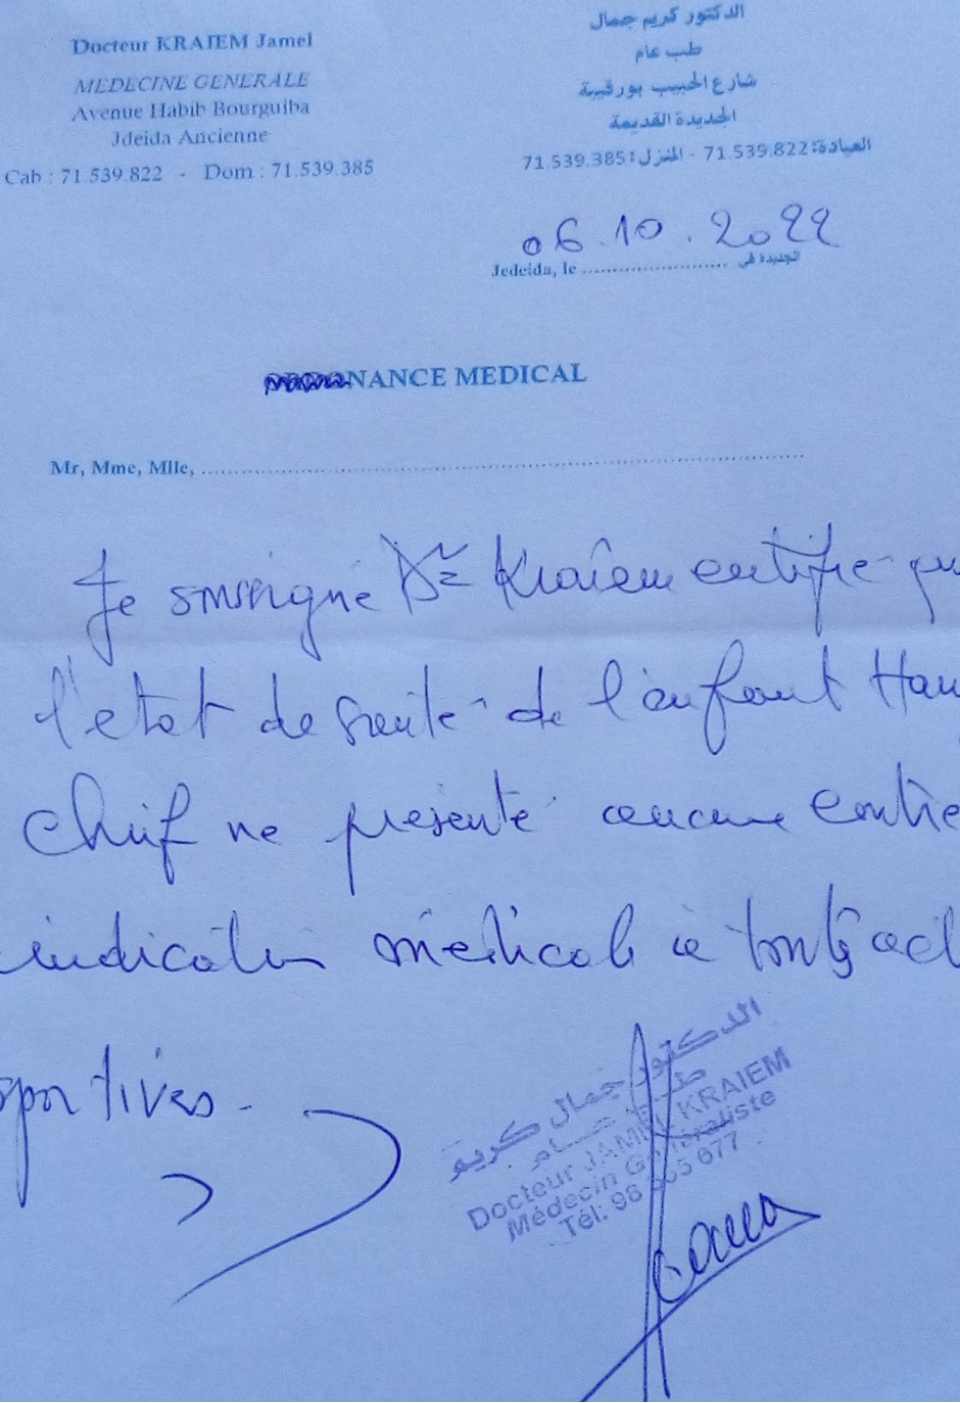 Docteur KRAIEM Jamel
MEDECINE GENERALE
Avenue Habib Bourguiba
Jdeida Ancienne
Cab : 71.539.822 - Dom : 71.539.385
الدكتور كريم جمال
طب عام
شارع الحبيب بورقيبة
الجديدة القديمة
العيادة: 71.539.822 - المنزل: 71.539.385
06.10.2022
Jedeida, le .............................. الجديدة في
NANCE MEDICAL
Mr, Mme, Mlle, ..............................
Je soussigné Dr Kraiem certifie que
l'etat de santé de l'enfant
Chrif ne présente aucune contre
indication médicale à toutes act
sportives.
الدكتور جمال كريم
طب عام
Docteur JAMEL KRAIEM
Médecin Généraliste
Tél: 98 677